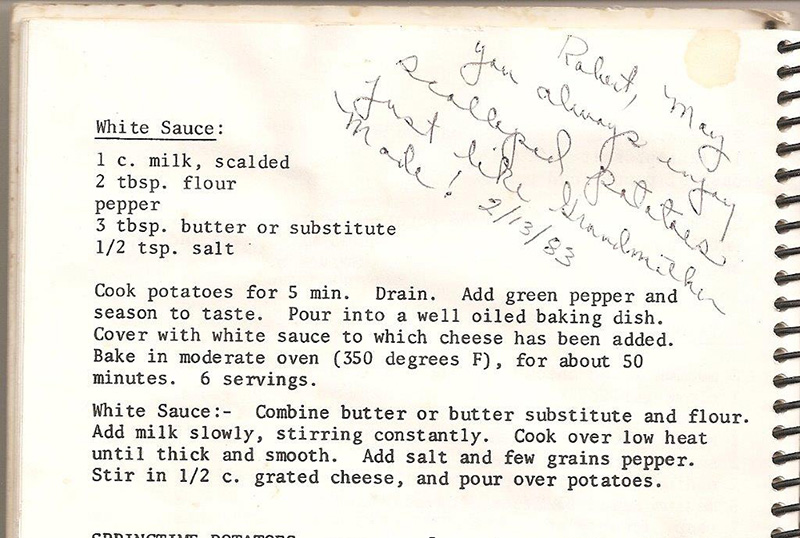 Robert, May
you always enjoy
scalloped potatoes
Just like Grandmother
Made! 2/13/83
White Sauce:
1 c. milk, scalded
2 tbsp. flour
pepper
3 tbsp. butter or substitute
1/2 tsp. salt
Cook potatoes for 5 min. Drain. Add green pepper and
season to taste. Pour into a well oiled baking dish.
Cover with white sauce to which cheese has been added.
Bake in moderate oven (350 degrees F), for about 50
minutes. 6 servings.
White Sauce:- Combine butter or butter substitute and flour.
Add milk slowly, stirring constantly. Cook over low heat
until thick and smooth. Add salt and few grains pepper.
Stir in 1/2 c. grated cheese, and pour over potatoes.
SPRINGTIME POTATOES